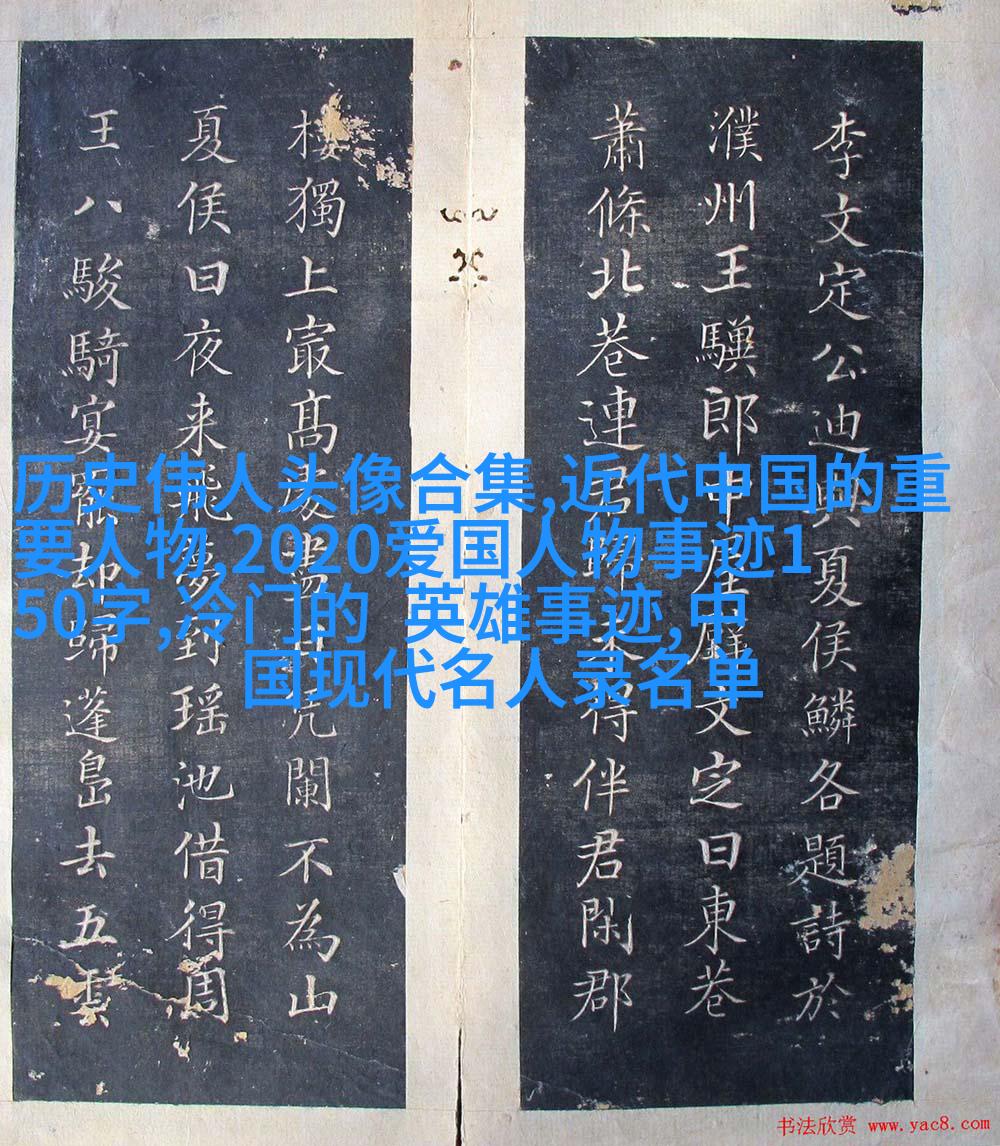 李文定公迪與夏侯鱗各題詩於
濮州王郎中屋壁文定曰東巷
蕭條北巷連君未得伴君閑郡
樓獨上㝡髙處盡日凭闌不為山
夏侯曰夜来飛夢到瑶池借得周
王八駿騎宴罷却歸蓬島去五雲
历史伟人头像合集,近代中国的重
要人物,2020爱国人物事迹1
50字,冷门的 英雄事迹,中
国现代名人录名单
书法欣赏 www.yac8.com